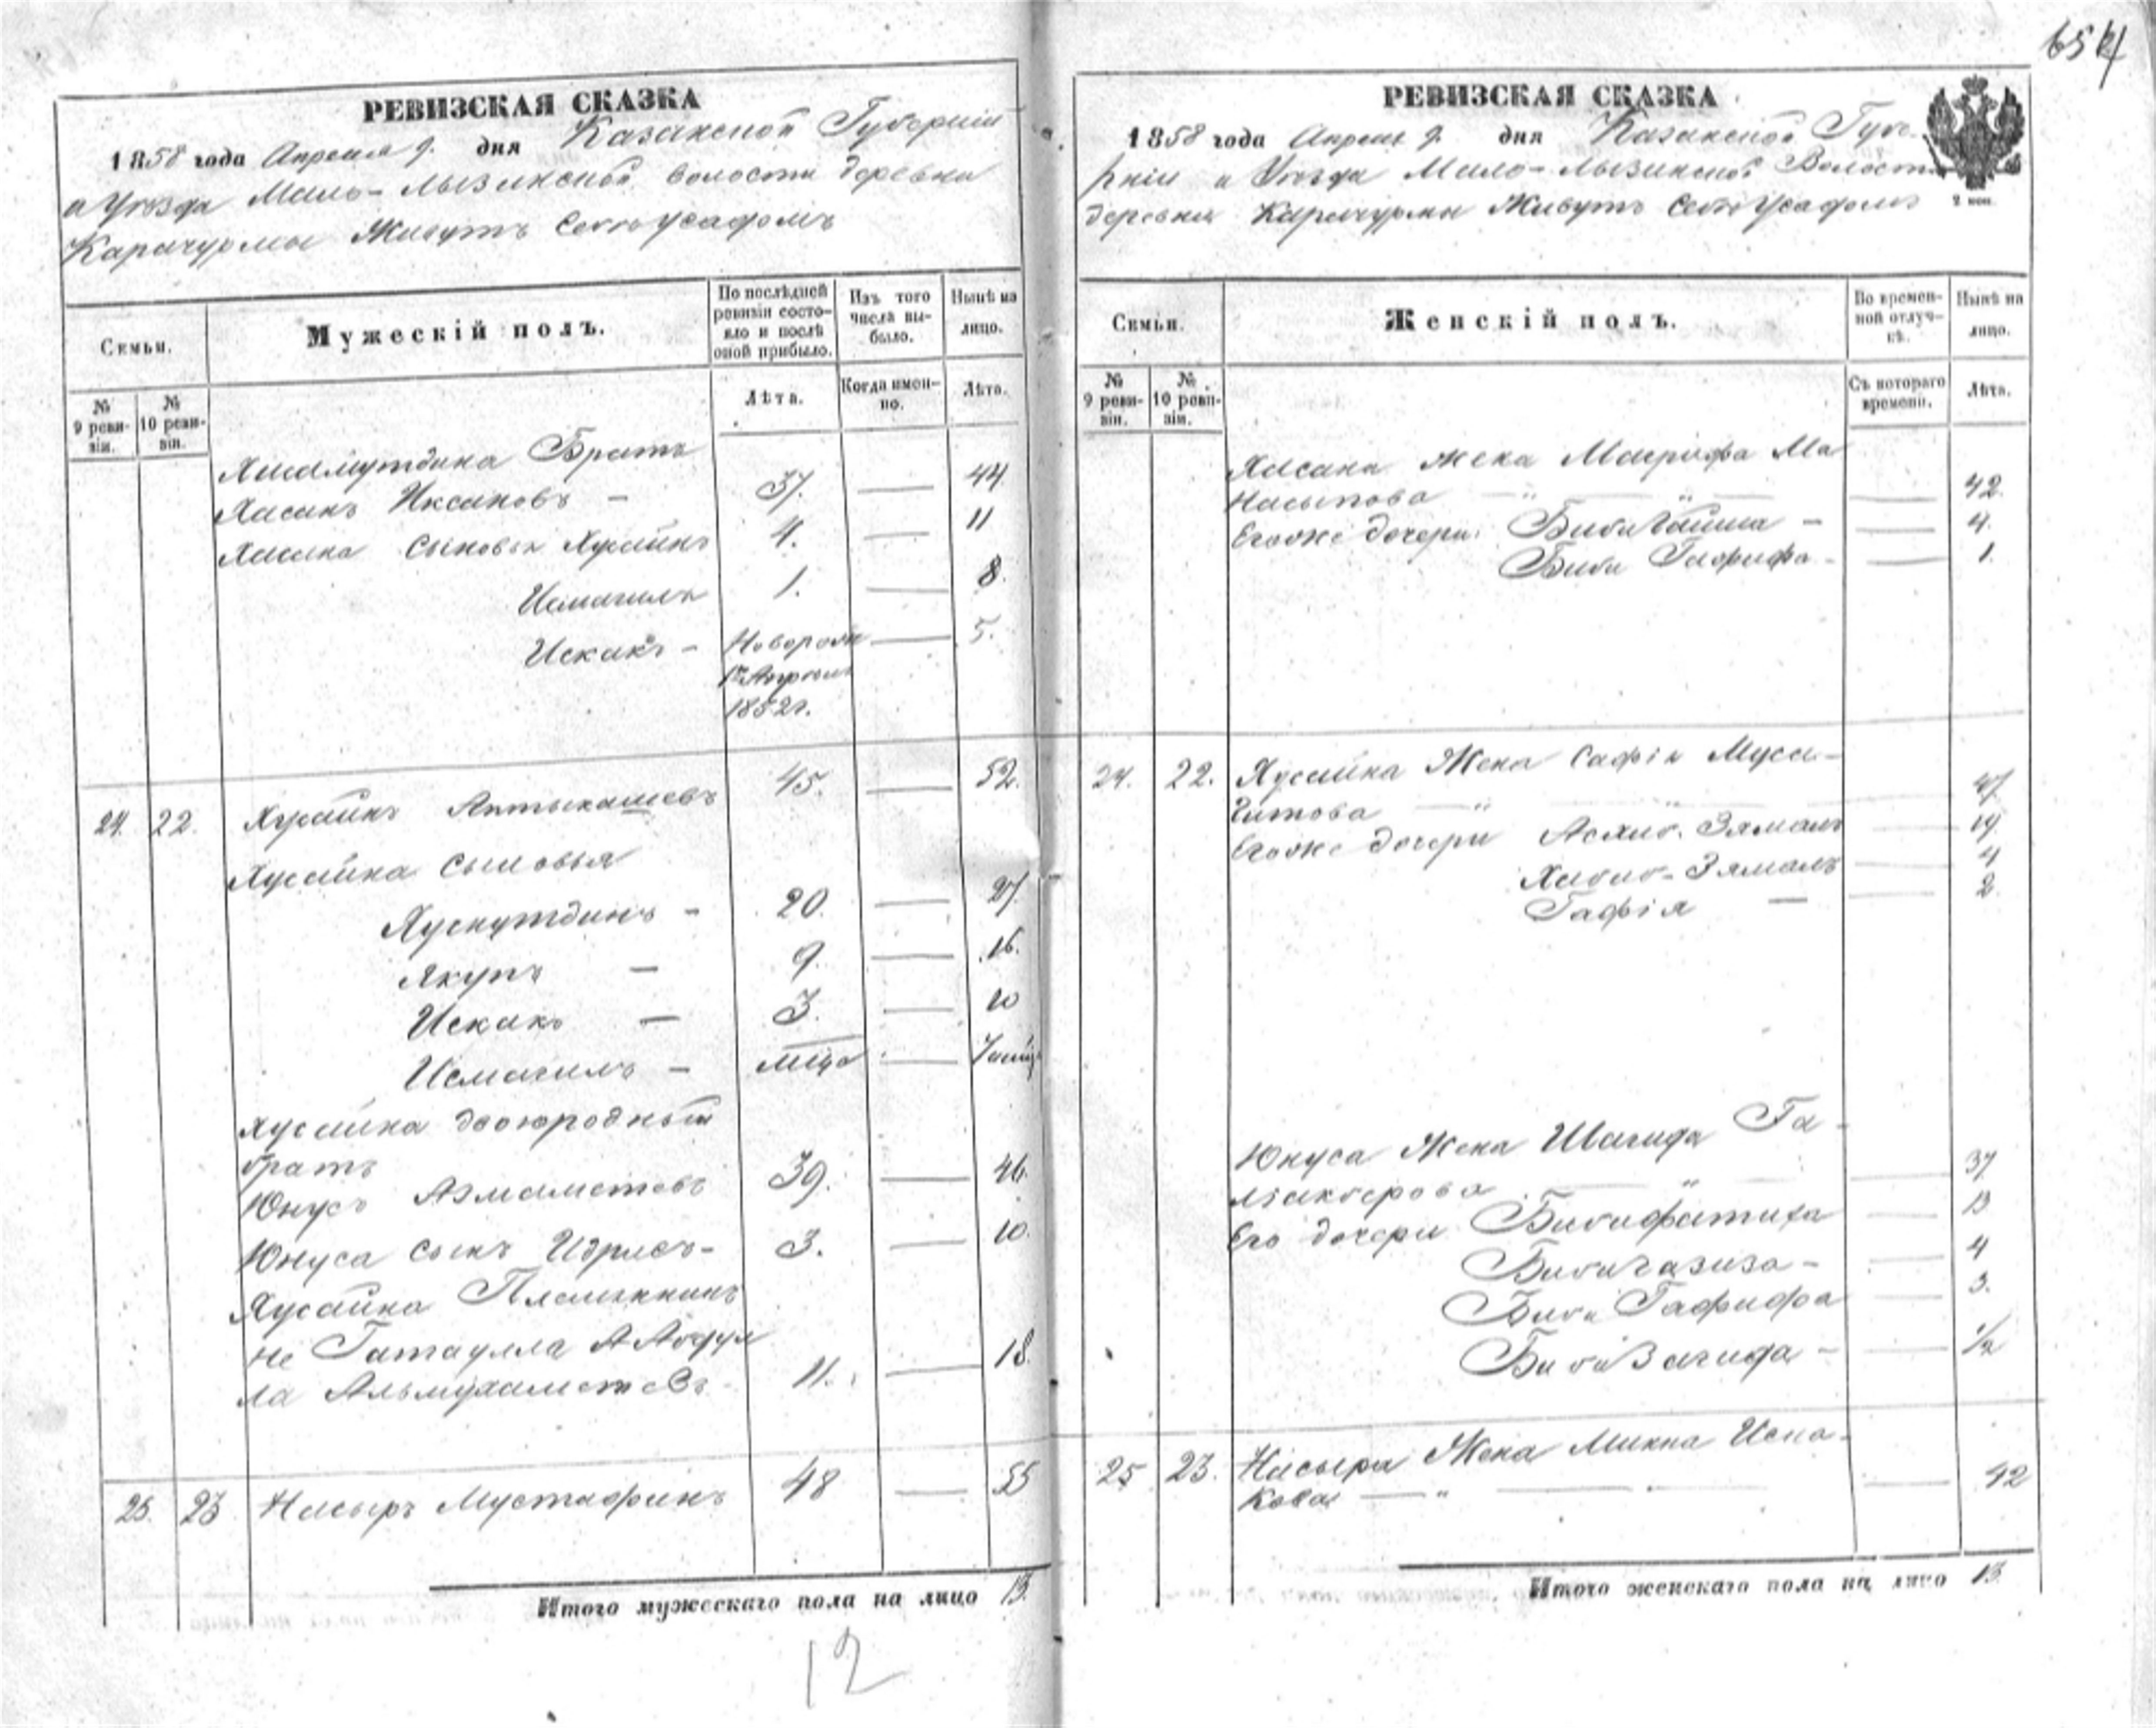 654
РЕВИЗСКАЯ СКАЗКА
1858 года Апреля 9. дня Казанской Губерніи
и Уѣзда Мало-Лызинской волости деревни
Карачурмы Живутъ Своѣ Усадомъ
Семьи.
Мужескій полъ.
По послѣдней ревизіи состояло и послѣ оной прибыло.
Изъ того числа выбыло.
Нынѣ на лицо.
№ 9 ревизіи.
№ 10 ревизіи.
Лѣта.
Когда именно.
Лѣта.
Братъ
Хасанъ Иксановъ - 37. 44
Хасана Сыновья Хусаинъ 4. 11
Исмагилъ 1. 8.
Искакъ - Новорож 5.
1852г.
24. 22. Хусаинъ Аптыкашевъ 45. 52.
Хусаина Сыновья
Хуснутдинъ - 20. 27
Якупъ - 9. 16.
Искакъ - 3. 10
Исмагилъ - мѣца
Хусаина двоюродный
братъ
Юнусъ Азмаметевъ 39. 46.
Юнуса Сынъ Идрисъ - 3. 10.
Хусаина Племянник
не Гатаулла Абдул
ла Альмухаметевъ 11. 18.
25. 23 Насыръ Мустафинъ 48 55
Итого мужескаго пола на лицо 13.
12
РЕВИЗСКАЯ СКАЗКА
1858 года Апреля 9. дня Казанской Губе
рніи и Уѣзда Мало-Лызинской Волости
деревни Карачурмы Живутъ Своѣ Усадомъ
Семьи.
Женскій полъ.
Во временной отлучкѣ.
Нынѣ на лицо.
№ 9 ревизіи.
№ 10 ревизіи.
Съ котораго времени.
Лѣта.
Хасана Жена Магрифа Ма
Насыпова 42.
Егоже дочери Биби Гайша - 4.
Биби Гафифа - 1.
24. 22. Хусаина Жена Сафія Муса-
гитова 47.
Егоже дочери Зямалъ 19
Хабиб-Зямалъ 4
Гафія - 2
Юнуса Жена Шагида Га-
ліакберова 37
Его дочери Бибифатиха 13
Бибигазиза - 4
Биби Гафифа 3.
Биби Загида - 1/2
25 23. Насыра Жена Минна Иска-
кова 42
Итого женскаго пола на лицо 13.